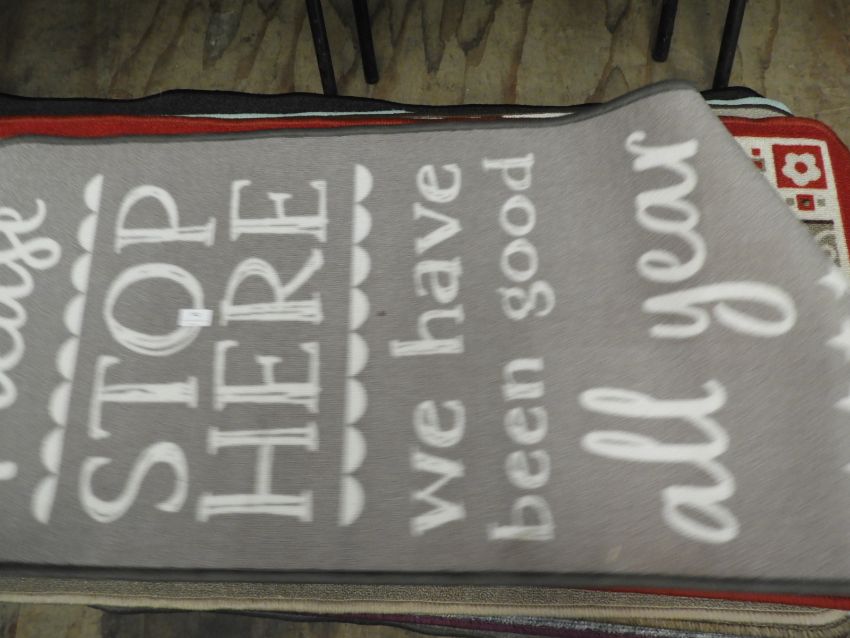 Please
STOP
HERE
we have
been good
all year